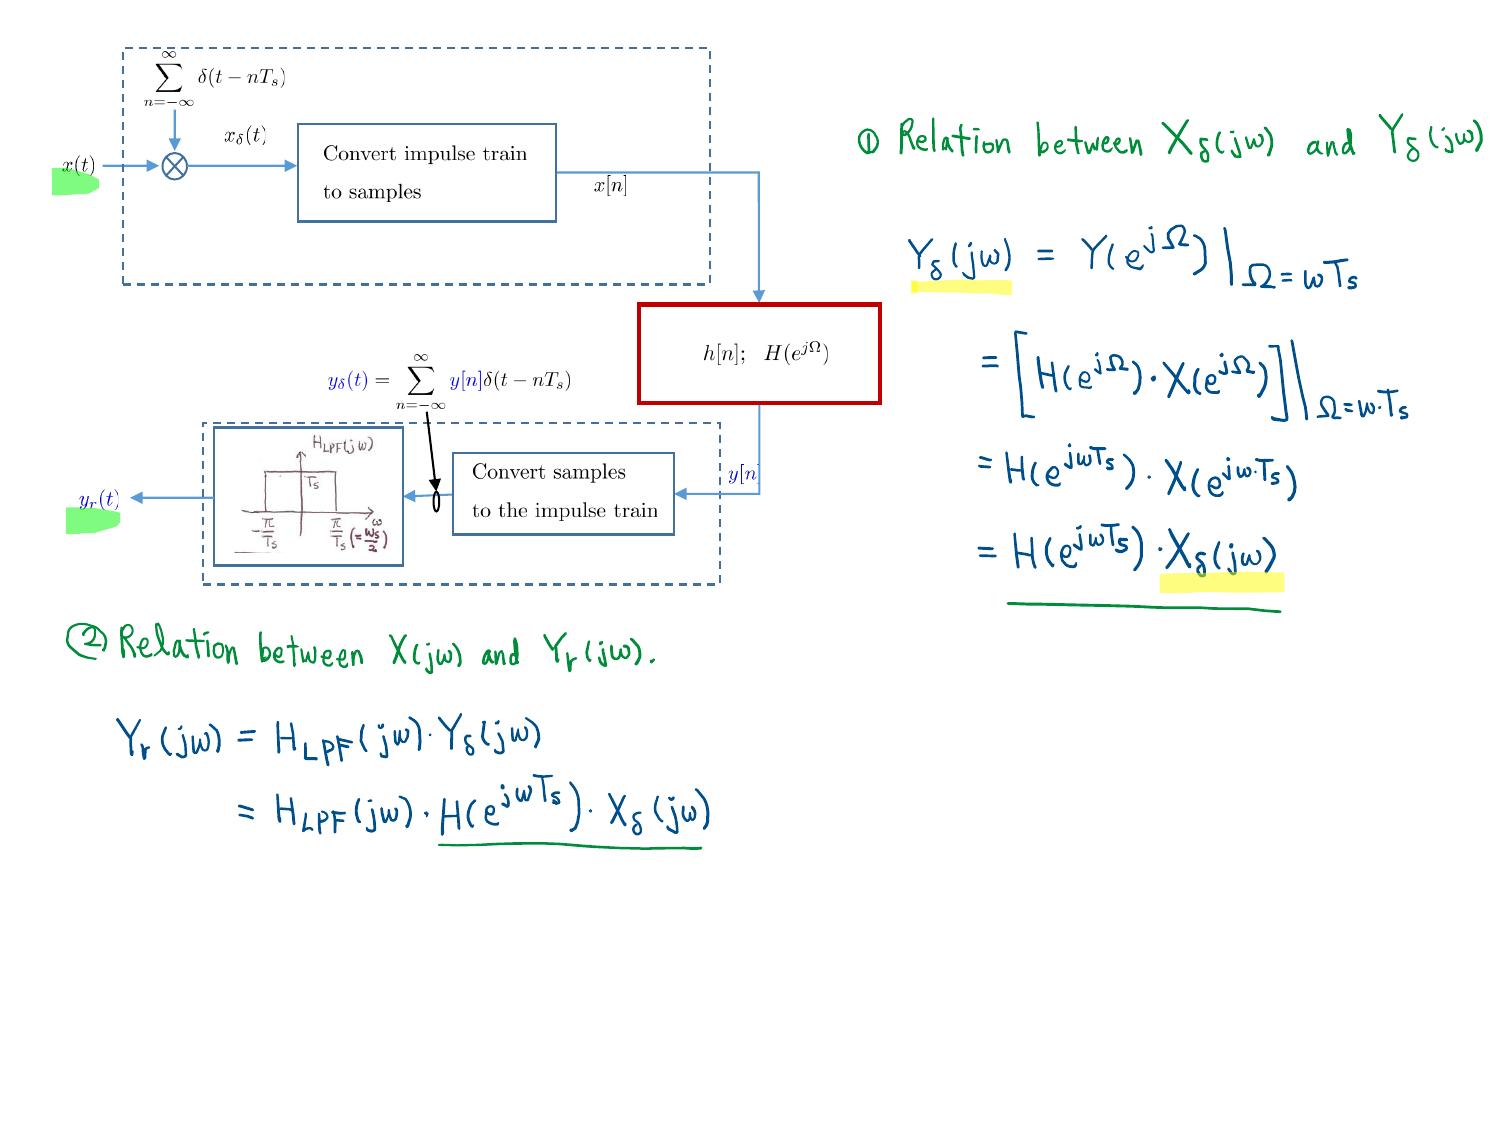 ∞
∑ δ(t − nTₛ)
n=−∞
x_δ(t)
x(t)
Convert impulse train
to samples
x[n]
h[n]; H(e^{jΩ})
∞
y_δ(t) = ∑ y[n]δ(t − nTₛ)
n=−∞
H_{LPF}(jω)
Tₛ
ω
−π/Tₛ π/Tₛ (=ωₛ/2)
Convert samples
to the impulse train
y[n]
y_r(t)
① Relation between X_δ(jω) and Y_δ(jω)
Y_δ(jω) = Y(e^{jΩ})|_{Ω=ωTₛ}
= [H(e^{jΩ})·X(e^{jΩ})]|_{Ω=ω·Tₛ}
= H(e^{jωTₛ})·X(e^{jω·Tₛ})
= H(e^{jωTₛ})·X_δ(jω)
② Relation between X(jω) and Y_r(jω).
Y_r(jω) = H_{LPF}(jω)·Y_δ(jω)
= H_{LPF}(jω)·H(e^{jωTₛ})·X_δ(jω)